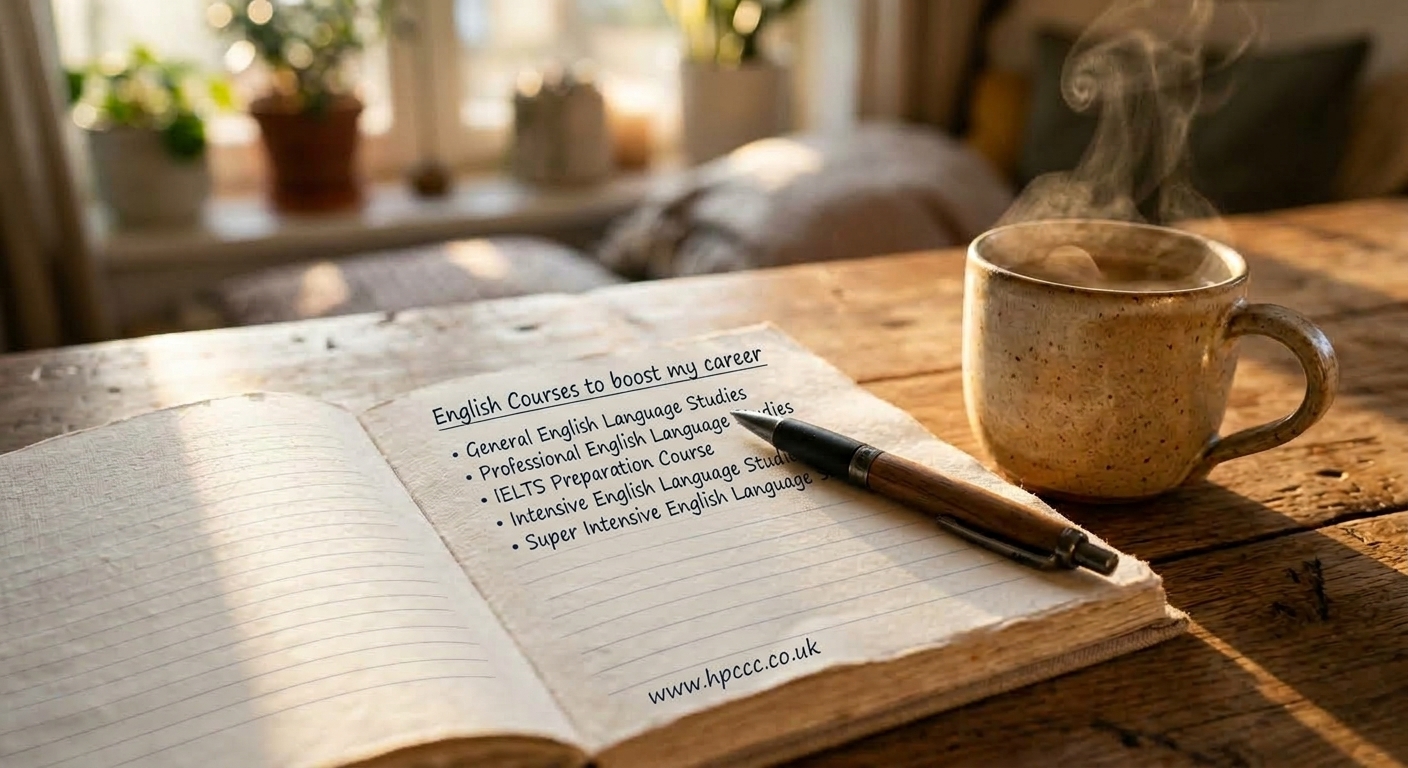 English Courses to boost my career
• General English Language Studies
• Professional English Language dies
• IELTS Preparation Course
• Intensive English Language Studie
• Super Intensive English Language
www.hpccc.co.uk